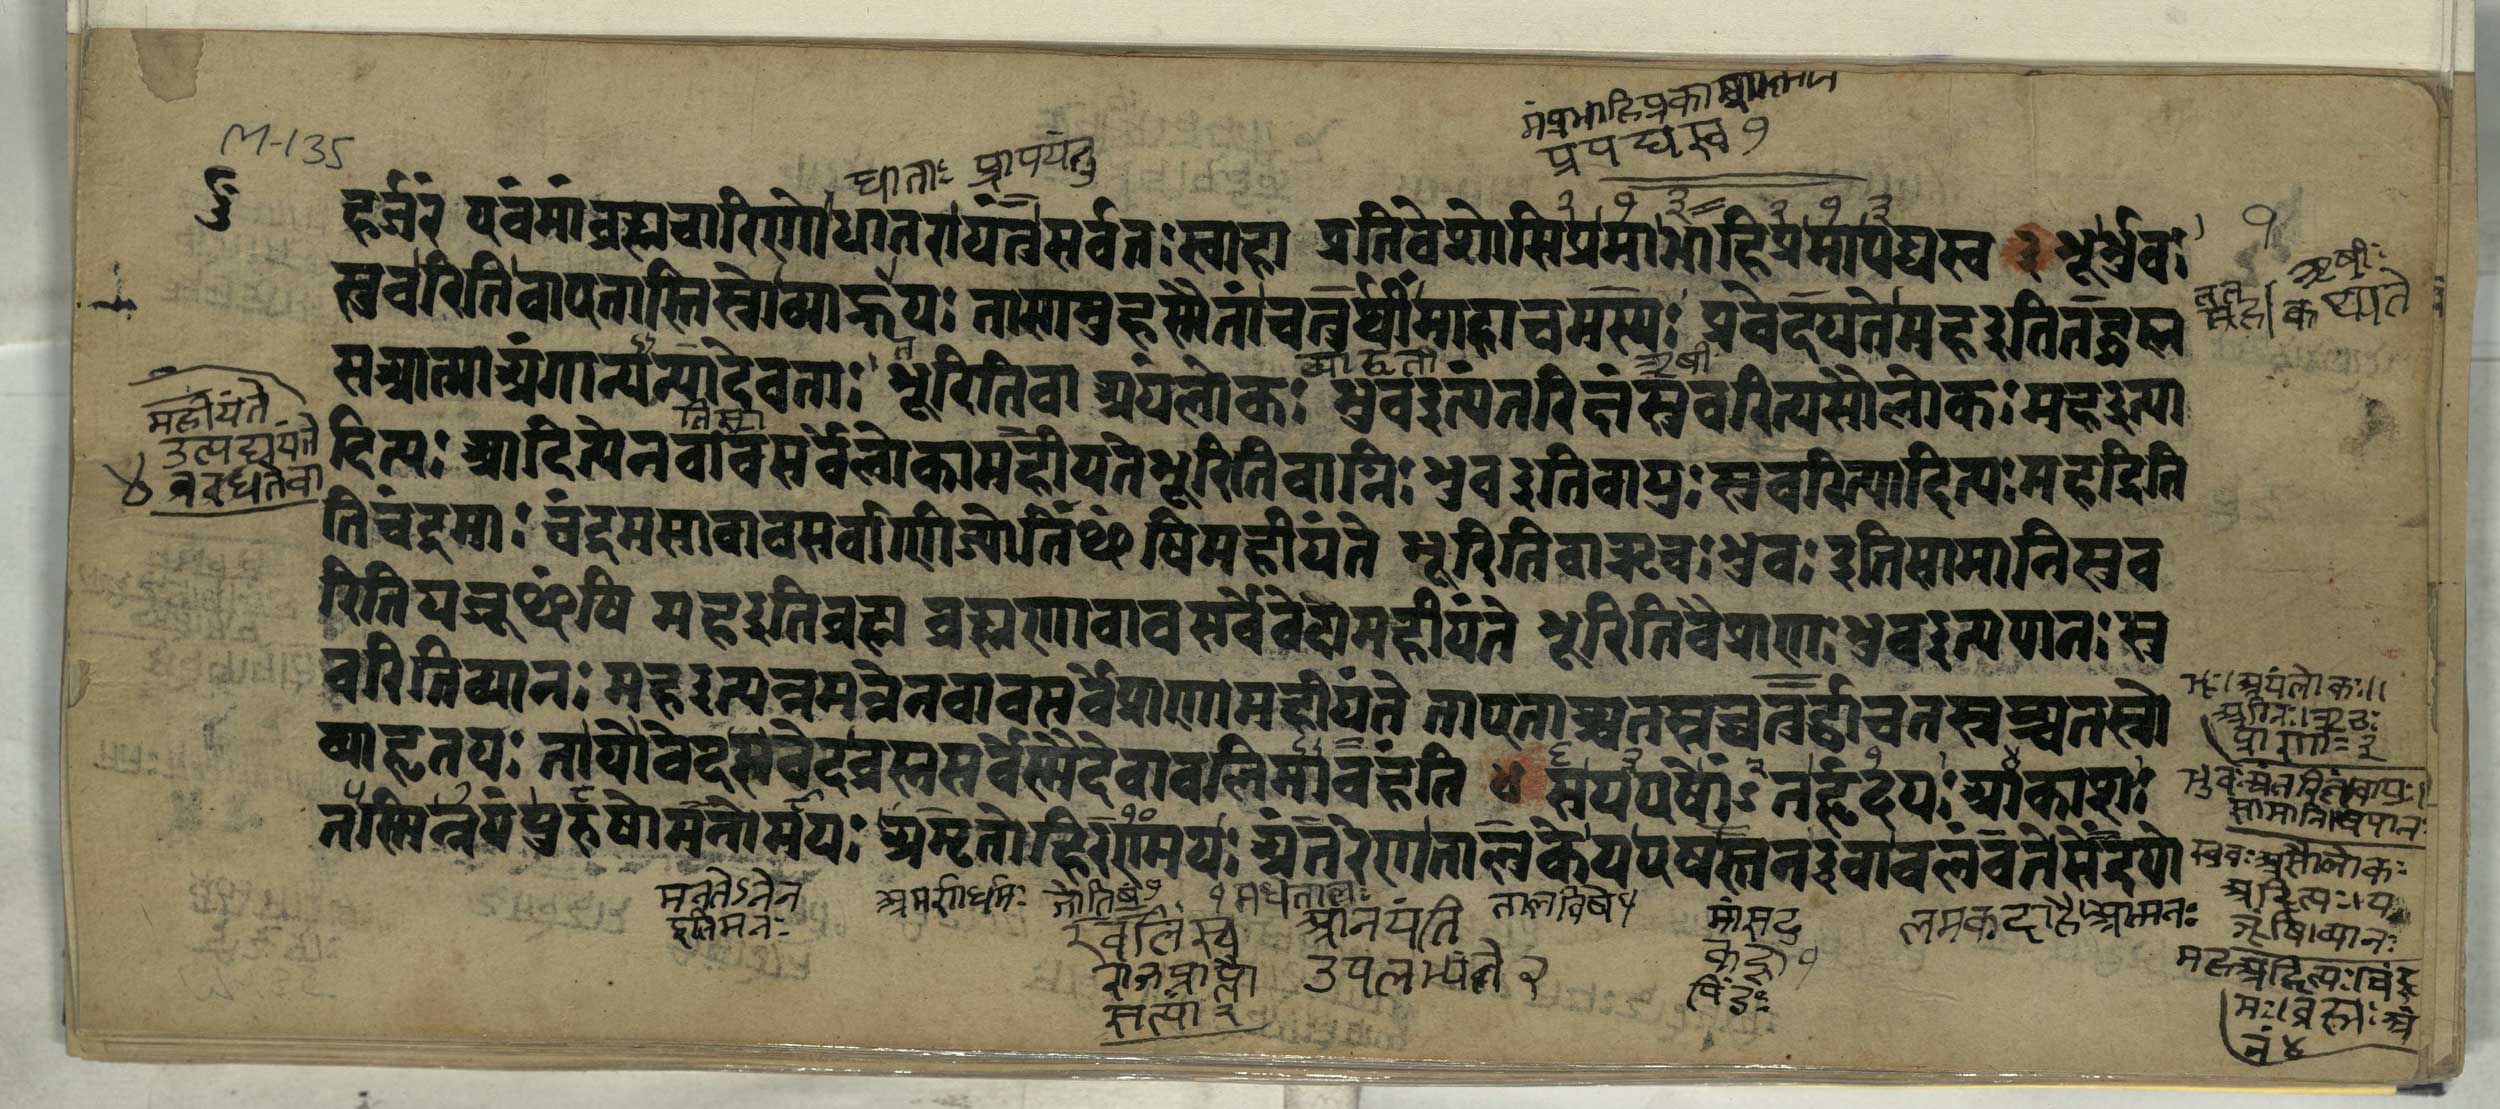 M-135
धाताः प्रापयंतु
प्रपद्यस्व १
हर्जरं एवंमांब्रह्मचारिणोधातरायंतुसर्वतःस्वाहा प्रतिवेशोसिप्रमाभाहिप्रमापद्यस्व ३ भूर्भुवः
सुवरितिवाएतास्तिस्रोव्याहृतयः तासामुहस्मैतांचतुर्थीमाहाचमस्यः प्रवेदयतेमहइतितद्ब्रह्म
सआत्माअंगान्यन्यादेवताः भूरितिवा अयंलोकः भुवइत्यंतरिक्षंसुवरित्यसौलोकः महइत्या
दित्यः आदित्येनवावसर्वेलोकामहीयंतेभूरितिवाग्निः भुवइतिवायुः सुवरित्यादित्यः महइति
तिचंद्रमाः चंद्रमसावावसर्वाणिज्योतिꣳषिमहीयंते भूरितिवाऋचः भुवः इतिसामानिसुव
रितियजूꣳषि महइतिब्रह्म ब्रह्मणावावसर्वेवेदामहीयंते भूरितिवैप्राणः भुवइत्यपानः सु
वरितिव्यानः महइत्यन्नमन्नेनवावसर्वेप्राणामहीयंते ताएताश्चतस्रश्चतुर्द्धाचतस्रश्चतस्रो
व्याहृतयः तायोवेदसवेदब्रह्मसर्वेस्मैदेवाबलिमावहंति ५ सयएषोंऽतर्हृदयः आकाशः
तस्मिन्नयंपुरुषोमनोमयः अमृतोहिरण्मयः अंतरेणतालुकेयएषस्तनइवावलंबतेसेंद्रयो
महीयंते
उत्पद्यंते
वर्धतेवा
४
१
ऋषीः
व्याहृती
ऋषी
भूः।अयंलोकः॥
अग्निः।ऋचः
प्राणाः १
भुवःअंतरिक्षंवायुः
सामानिअपानः
सुवःअसौलोकः
आदित्यः।य
जूंषि।व्यानः
महःआदित्यःचंद्र
मः।ब्रह्मःअं
नं ४
मनुतेऽनेन
इतिमनः
अमरणधर्मः
ज्योतिषं १
आनयंति
उपलभ्यंते २
तालविषे
मांसदु
कडा १
पिंडः